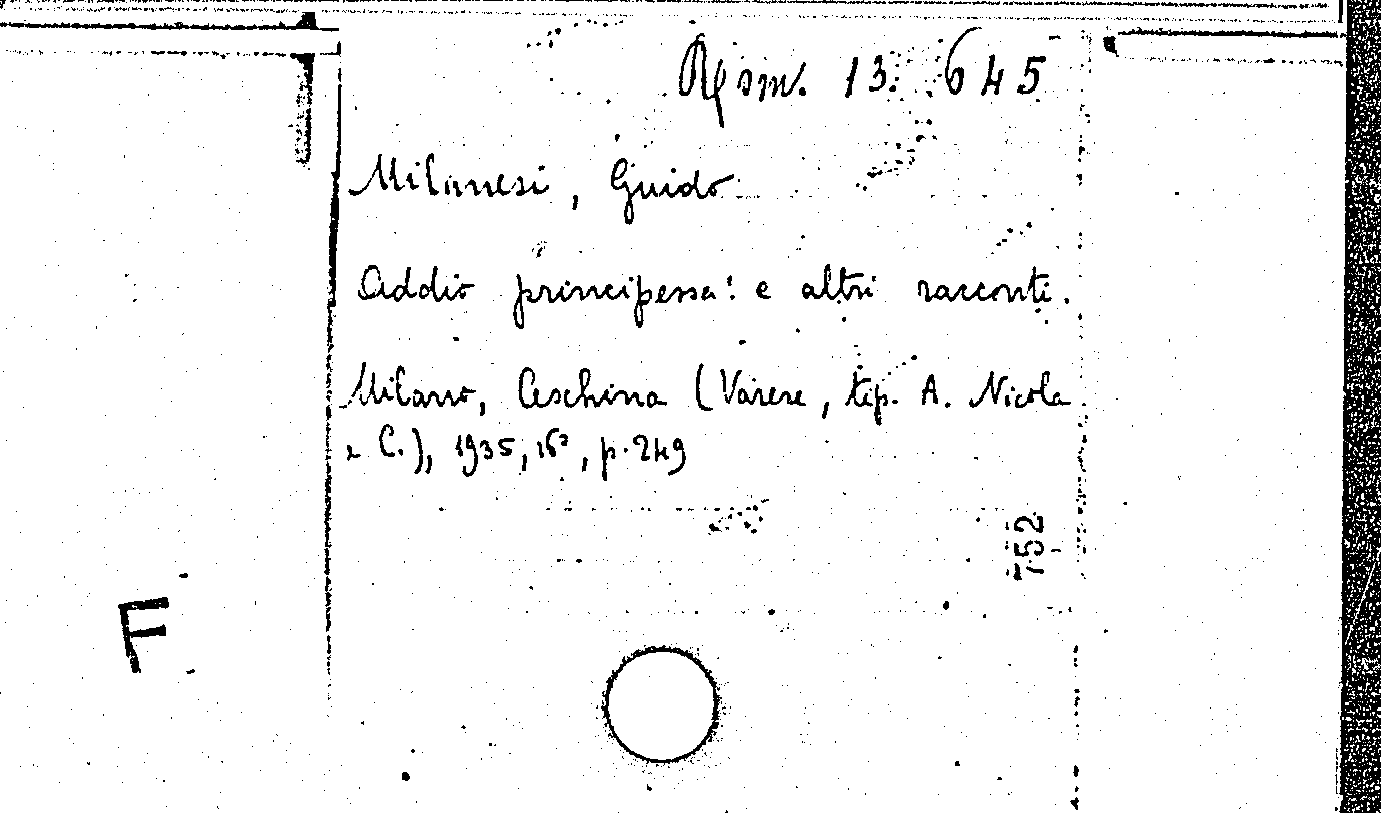 Rom. 13. 645
Milanesi, Guido
Addio principessa! e altri racconti.
Milano, Ceschina (Varese, tip. A. Nicola
e C.), 1935, 16°, p. 249
752
F